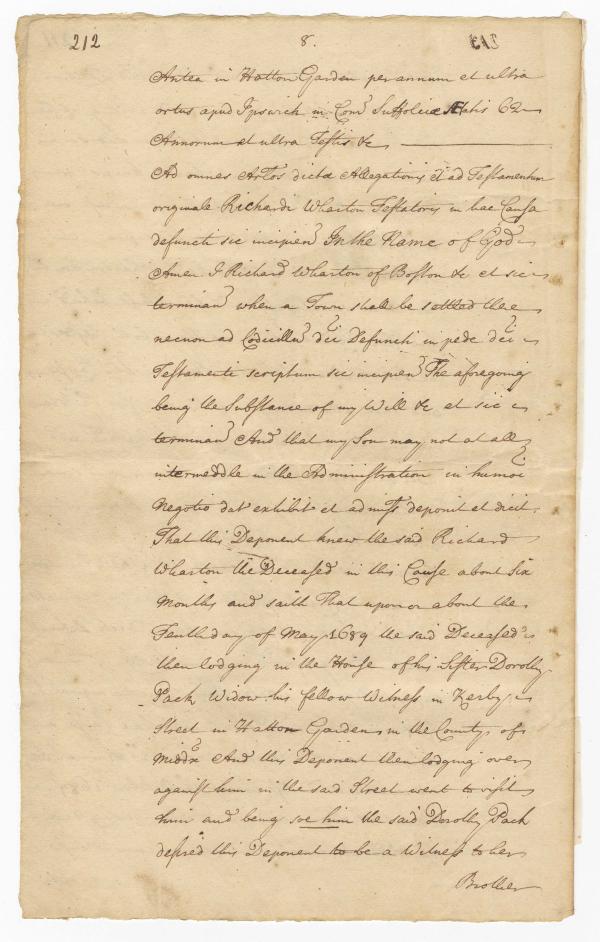 212 8. 213
Antea in Hatton Garden per annum et ultra
ortus apud Ipswich in Com Suffolciæ Ætatis 62
Annorum et ultra Testis &c
Ad omnes Artos dictæ Allegationis et ad Testamentum
originale Richardi Wharton Testatoris in hac Causa
defuncti sic incipien In the Name of God
Amen I Richard Wharton of Boston &c et sic
terminan when a Town shall be settled there
necnon ad Codicillu dci Defuncti in pede dci
Testamenti scriptum sic incipien The aforegoing
being the Substance of my Will &c et sic
terminan And that my Son may not at all
intermeddle in the Administration in humoi
Negotio dat exhibit et admiss deponit et dicit.
That this Deponent knew the said Richard
Wharton the Deceased in this Cause about Six
Months and saith That upon or about the
Tenth day of May 1689 the said Deceased
then lodging in the House of his Sister Dorothy
Pack Widow his fellow Witness in Kerby
Street in Hatton Garden in the County of
Middx And this Deponent then lodging over
against him in the said Street went to visit
him and being wt him the said Dorothy Pack
desired this Deponent to be a Witness to her
Brother